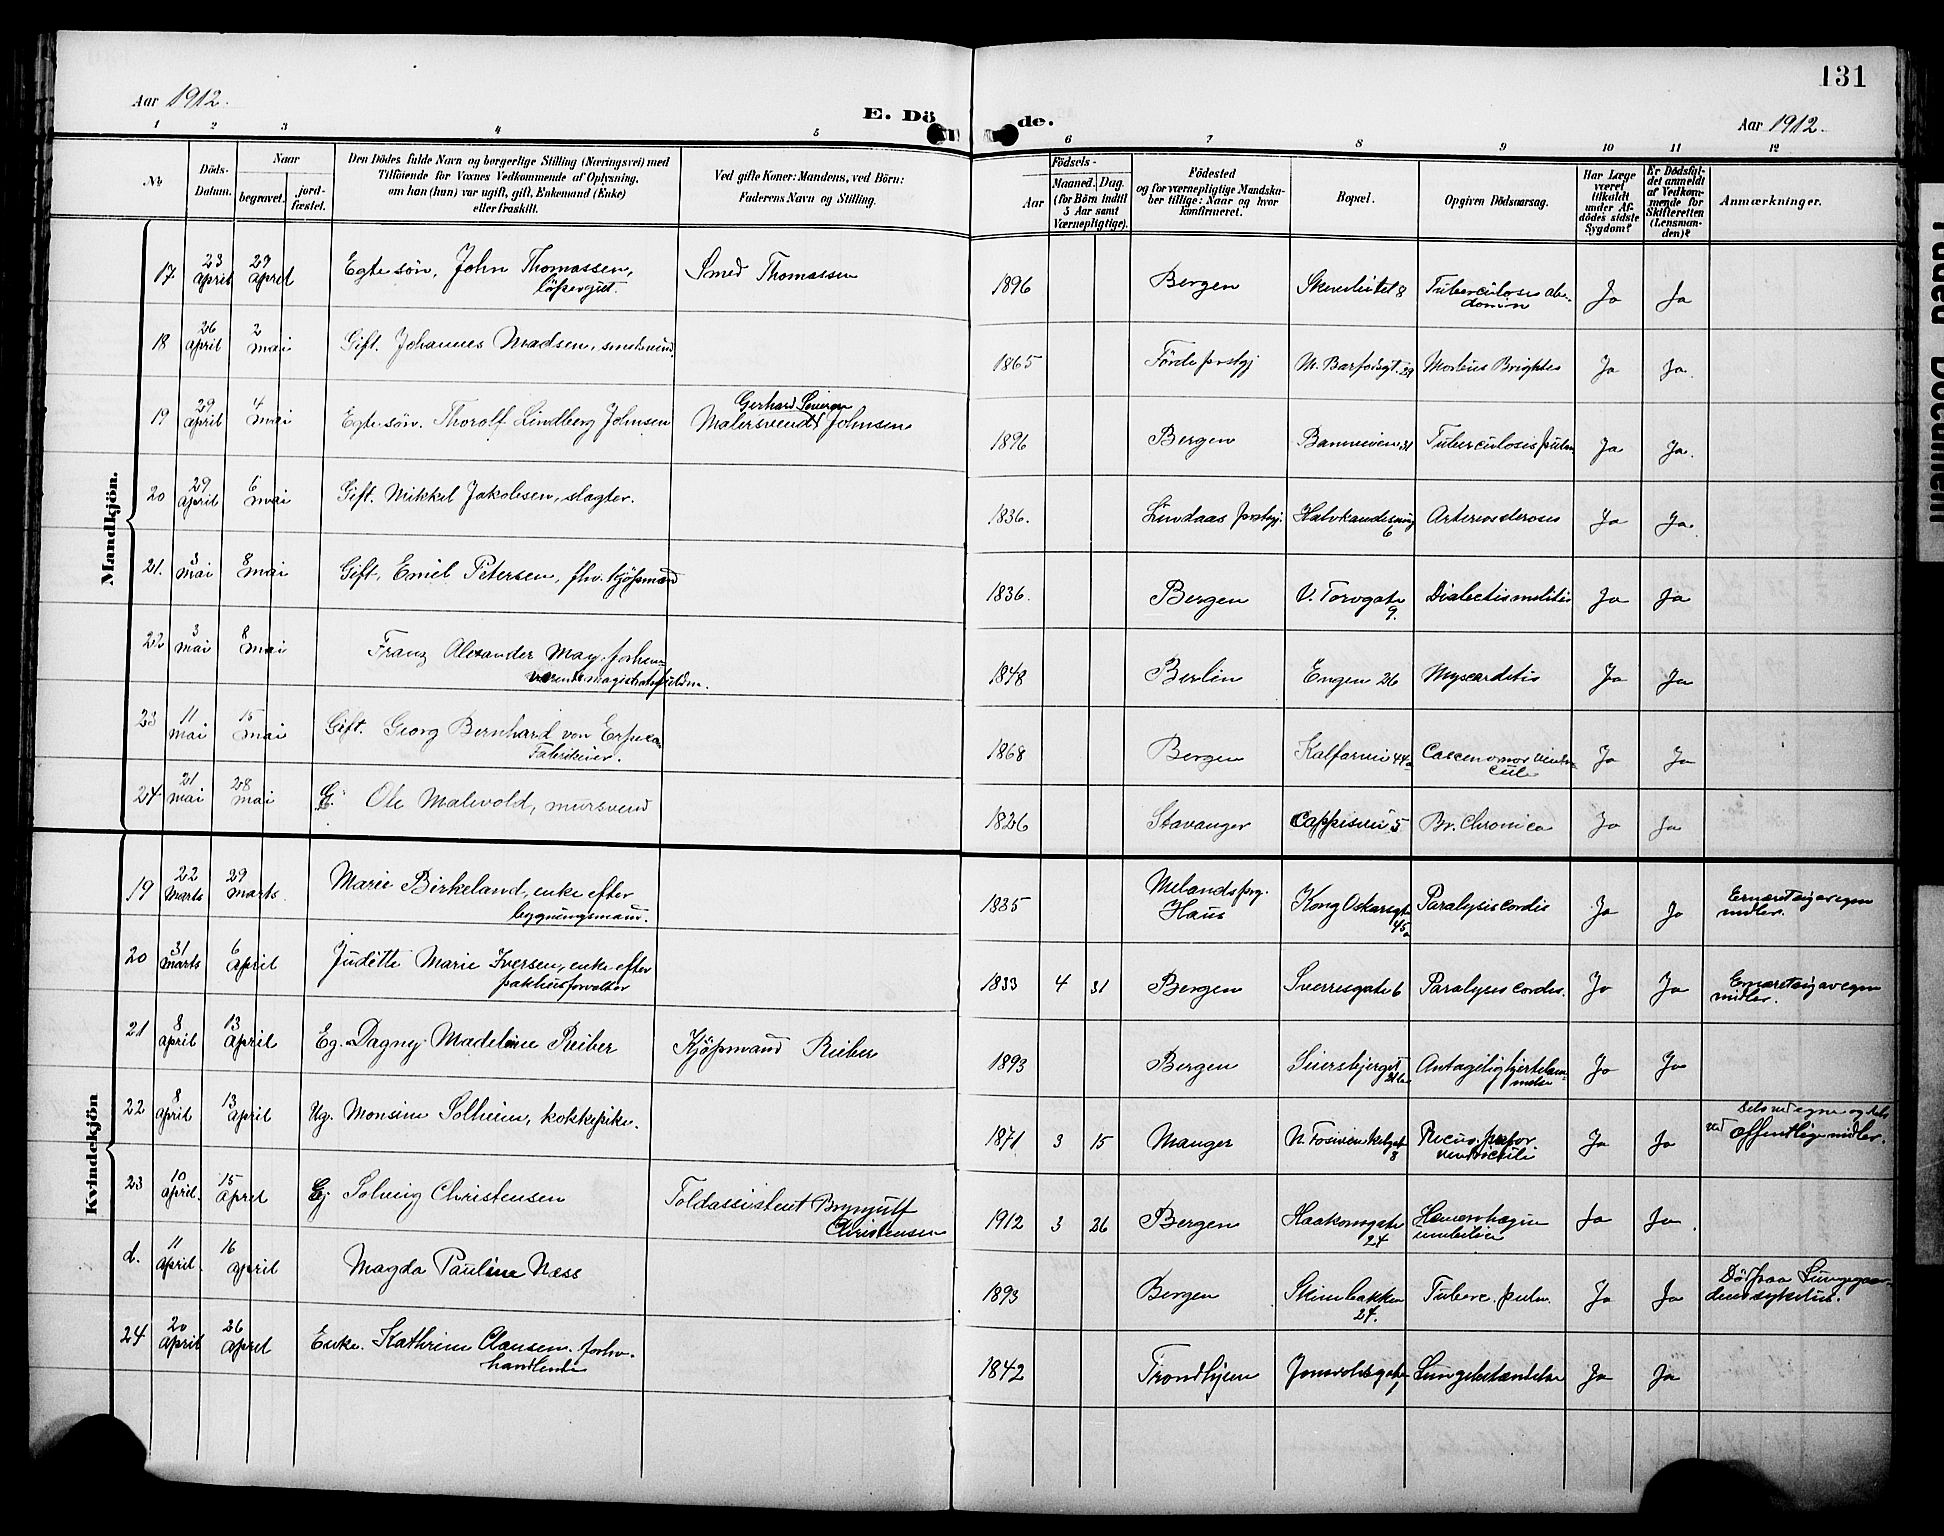 131
Aar 1912.
E. Dö de.
Aar 1912.
1 2 3 4 5 6 7 8 9 10 11 12
No
Döds-Datum.
Naar
begravet.
jord-fæstet.
Den Dödes fulde Navn og borgerlige Stilling (Næringsvei) med
Tilföiende for Voxnes Vedkommende af Oplysning,
om han (hun) var ugift, gift, Enkemand (Enke)
eller fraskilt.
Ved gifte Koner: Mandens, ved Börn:
Faderens Navn og Stilling.
Födsels-
Aar
Maaned. Dag.
(for Börn indtil
5 Aar samt
Værnepligtige).
Födested
og for værnepligtige Mandska-
ber tillige: Naar og hvor
konfirmeret.
Bopæl.
Opgiven Dödsaarsag.
Har Læge
været
tilkaldt
under Af-
dödes sidste
Sygdom?
Er Dödsfal-
det anmeldt
af Vedkom-
mende for
Skifteretten
(Lensman-
den)?
Anmærkninger.
Mandkjön.
17 23 april 29 april Egte søn, John Thomassen, löpergut. Smed Thomassen 1896 Bergen 8 Tuberculosis abdomin Ja Ja
18 26 april 2 mai Gift. Johannes Madsen, 1865 Förde prstgj M. Barfodsgt. 29 Morbus Brightes Ja Ja.
19 29 april 4 mai Egte søn. Thorolf Lindberg Johnsen Gerhard Malersvend Johnsen 1896 Bergen 31 Tuberculosis pulm Ja Ja.
20 29 april 6 mai Gift. Mikkel Jakobsen, slagter. 1836. Lindaas prstgj. 6 Arteriosclerosis Ja Ja.
21. 3 mai 8 mai Gift, Emil Petersen, fhv. kjøpmand 1836. Bergen V. Torvgate 9. Ja Ja
22 3 mai 8 mai Franz Alexander May. forhenværende 1848 Berlin Engen 26 Myocarditis Ja Ja
23 11 mai 15 mai Gift. Georg Bernhard von Erpecom Fabrikeier. 1868 Bergen Kalfarvei 44a Ja Ja
24 21 mai 28 mai E. Ole Malvold, mursvend 1826 Stavanger Cappesvei 5 Br. Chronica Ja Ja
Kvindekjön
19 22 marts 29 marts. Marie Birkeland, enke efter bygningsmand. 1835 Melands prg. Haus Kong Oskarsgt 45a Paralysis cordis Ja Ja Ernæret sig av egne midler.
20 31 marts 6 april Judithe Marie Iversen, enke efter pakhusforvalter 1833 4 31 Bergen Sverresgate 6 Paralysis cordis. Ja Ja Ernæret sig av egne midler.
21 8 april 13 april Eg. Dagny Madeleine Rieber Kjøpmand Rieber 1893 Bergen Antagelig hjertelammelse Ja Ja
22 8 april 13 april Ug. Monsine Solheim, kokkepike. 1871 3 15 Manger 8 Ja Ja Dels ved egne og dels ved offentlige midler.
23 10 april. 15 april Eg Solveig Christensen Toldassistent Brynjulf Christensen 1912 3 26 Bergen Haakonsgate 24 Ja Ja.
d. 11 april. 16 april Magda Pauline Næss 1893 Bergen 24. Tuberc. pulm. Ja Ja Död paa Lungegaardens sykehus.
24 20 april 26 april Enke. Kathrine Clausen. forhv. handlende 1842 Trondhjem Jonsvoldsgate 1 Lungebetændelse Ja Ja